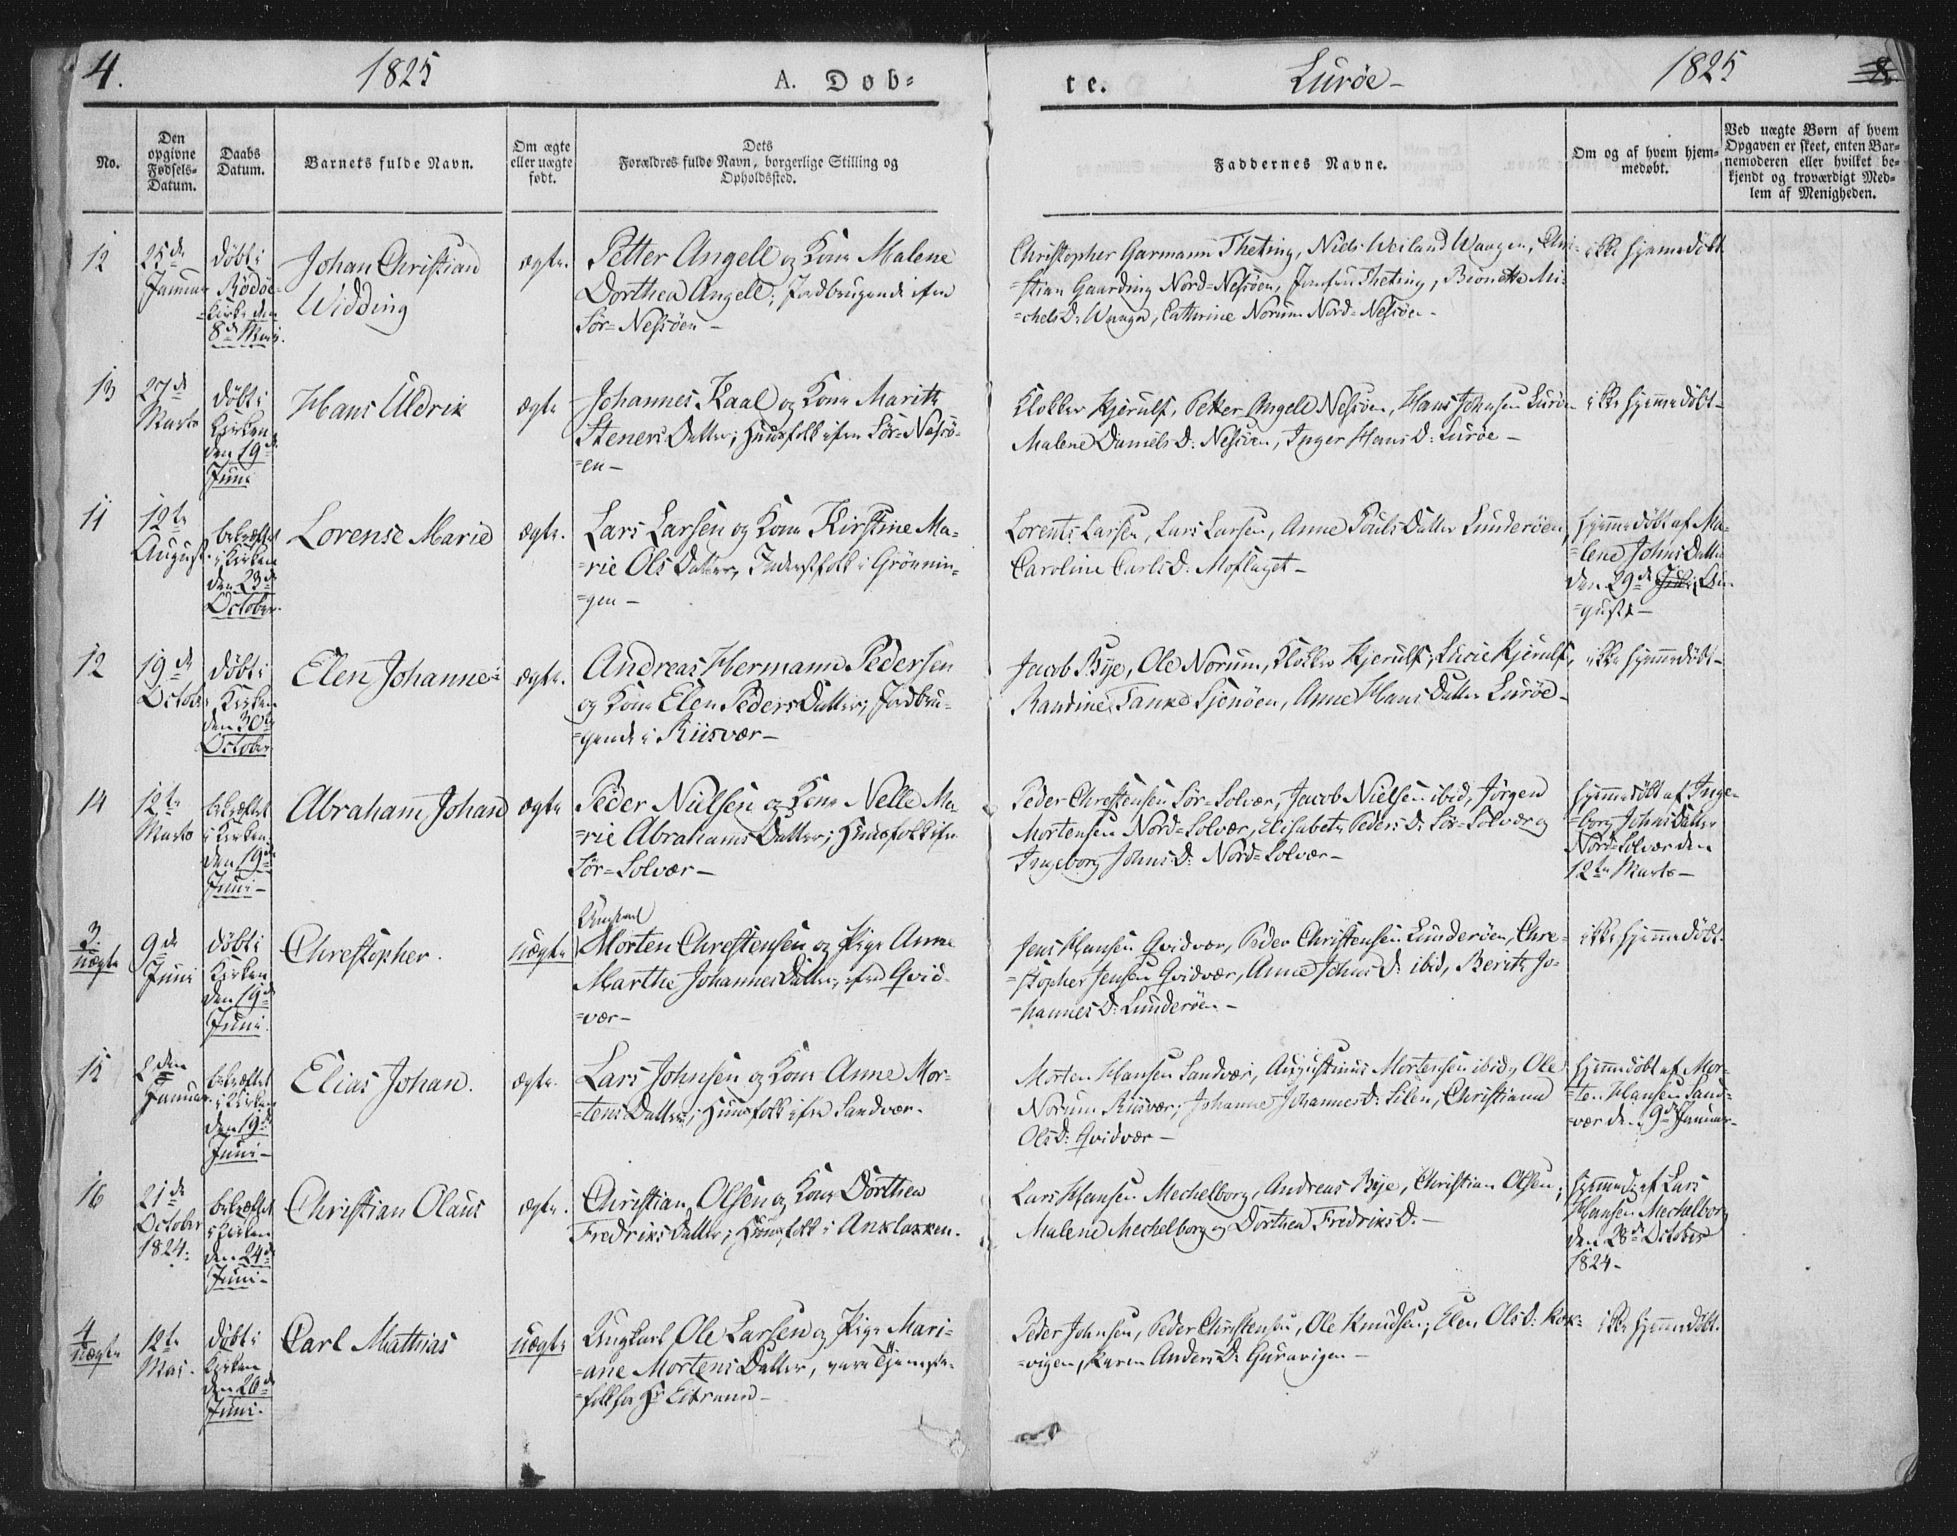 4.
1825
A. Døb-
te.
Lurøe-
1825
No.
Den
opgivne
Fødsels-
Datum.
Daabs
Datum.
Barnets fulde Navn.
Om ægte
eller uægte
født.
Dets
Forældres fulde Navn, borgerlige Stilling og
Opholdssted.
Faddernes Navne.
Om og af hvem hjem-
medøbt.
Ved uægte Børn af hvem
Opgaven er skeet, enten Bar-
nemoderen eller hvilket be-
kjendt og troværdigt Med-
lem af Menigheden.
12
25de
Januar
døbt i
Rødøe
Kirke den
8de Mai.
Johan Christian
Widding
ægte.
Petter Angell og Kone Malene
Dorthea Angell; Jordbrugende ifra
Sör-Nessöen-
Christopher Garmann Theting, Niels Weiland Waagen, Chri-
=stian Gaarding Nord-Nessöen, Theting,
=chels D: Waagen, Cathrine Norum Nord-Nessöen-
ikke hjemmedøbt
13
27de
Marts
døbt i
Kirken
den 19de
Juni
Hans Uldrik
ægte
Johannes Kaal og Kone Marith
Steners Datter; Huusfolk ifra Sör-Nessö-
=en-
Klokker Hjerulf, Petter Angell Nessöen, Hans Johnsen Luröe
Malene Daniels D: Nessöen, Inger Hans D: Luröe-
ikke hjemmedøbt-
11
12te
August
bekræftet
i Kirken
den 23de
October.
Lorense Marie
ægte.
Lars Larsen og Kone Kirstine Ma-
=rie Ols Datter, Inderstfolk i Grönnin-
=gen-
Lorents Larsen, Lars Larsen, Anne Pouls Datter Lunderöen,
Caroline Carls D: Moflaget-
hjemmedøbt af Ma-
=lene Johns Datter
den 29de Juli, Au-
=gust-
12
19de
Octobr
døbt i
Kirken
den 30te
October
Elen Johanne
ægte.
Andreas Hermann Pedersen
og Kone Elen Peders Datter, Jordbru-
=gende i Riisvær-
Jacob Bye, Ole Norum, Klokker Hjerulf, Lucie Hjerulf,
Randine Tanke Sjonöen, Anne Hans Datter Luröe-
ikke hjemmedøbt-
14
12te
Marts
bekræftet
i Kirken
den 19de
Juni-
Abraham Johan
ægte
Peder Nielsen og Kone Nelle Ma-
=rie Abrahams Datter; Huusfolk ifra
Sör-Solvær-
Peder Christensen Sör-Solvær, Jacob Nielsen ibid, Jörgen
Mortensen Nord-Solvær, Elisabeth Peders D: Sör-Solvær og
Ingeborg Johns D: Nord-Solvær-
hjemmedøbt af Inge-
borg Johns Datter
Nord-Solvær den
12te Marts-
3.
uægte
9de
Juni
døbt i
Kirken
den 19de
Juni.
Chrestopher.
uægte
Ungkarl
Morten Chrestensen og Pige Anne
Marthe Johannes Datter, ifra Qvid-
=vær-
Jens Hansen Qvidvær, Peder Christensen Lunderöen, Chre-
=stopher Jensen Qvidvær, Anne Johns D: ibid, Berith Jo-
=hannes D: Lunderöen-
ikke hjemmedøbt.
15
2den
Januar
bekræftet
i Kirken
den 19de
Juni-
Elias Johan.
ægte.
Lars Johnsen og Kone Anne Mor-
tens Datter; Huusfolk ifra Sandvær.
Morten Hansen Sandvær, Augustinus Mortensen ibid, Ole
Norum Riisvær, Johanne Johannes D: Silen, Christiana
Ols D: Qvidvær-
hjemmedøbt af Mor-
=ten Hansen Sand-
=vær den 9de Januar-
16
21de
October
1824.
bekræftet
i Kirken
den 24de
Juni-
Christian Olaus
ægte.
Christian Olsen og Kone Dorthea
Fredriks Datter; Huusfolk i Anklakken.
Lars Hansen Mechelborg, Andreas Bye, Christian Olsen,
Malene Mechelborg og Dorthea Fredriks D.-
hjemmed: af Lars
Hansen Mechelborg
den 28de October
1824-
4
uægte
12te
Mai.
døbt i
Kirken
den 26de
Juni.
Carl Mathias
uægte
Ungkarl Ole Larsen og Pige Mari-
=ane Mortens Datter, være Tjeneste-
=folk for Hr Eitrand-
Peder Johnsen, Peder Christensen, Ole Knudsen, Elen Ols D: Kok-
=vigen, Karen Anders D: Guravigen-
ikke hjemmedøbt.